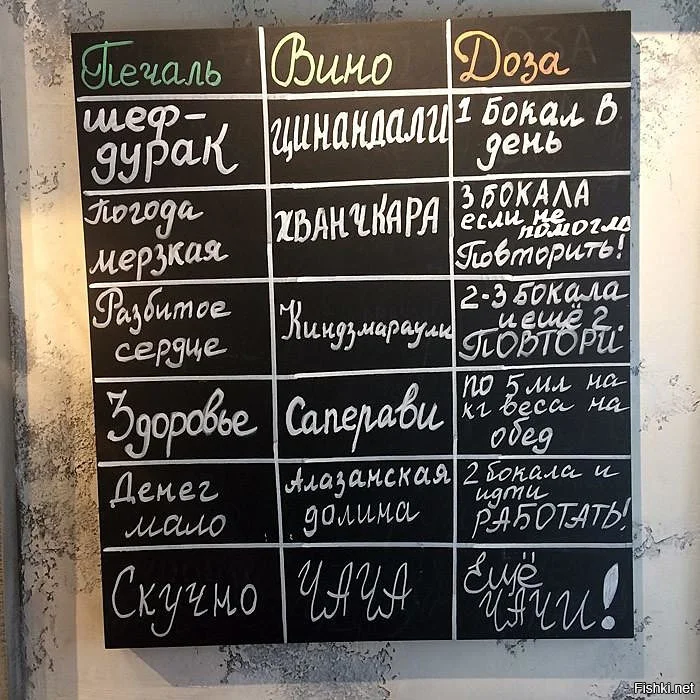 Печаль Вино Доза
шеф-
дурак
Цинандали
1 бокал в
день
Погода
мерзкая
Хванчкара
3 бокала
если не
помогло
Повторить!
Разбитое
сердце
Киндзмараули
2-3 бокала
и ещё 2.
ПОВТОРИ
Здоровье
Саперави
по 5 мл на
кг веса на
обед
Денег
мало
Алазанская
долина
2 бокала и
идти
РАБОТАТЬ!
Скучно
ЧАЧА
Ещё
ЧАЧИ!
Fishki.net